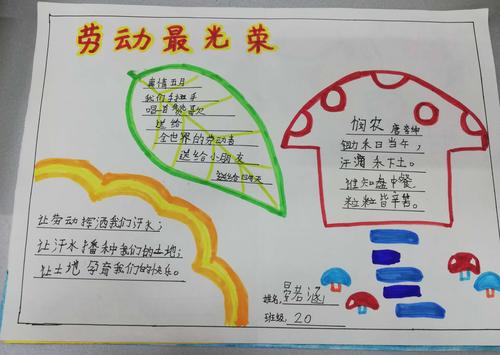 劳动最光荣
真情五月
我们手握手
唱首赞歌
送给
全世界的劳动者
送给小朋友
悯农 唐李绅
锄禾日当午，
汗滴禾下土。
谁知盘中餐
粒粒皆辛苦。
让劳动挥洒我们汗水；
让汗水播种我们的土地；
让土地孕育我们的快乐。
姓名，晏若涵
班级，20